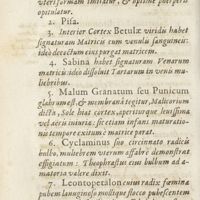 uteri formam imitatur, & optimè puerperis
opitulatur.
2. Pisa.
3. Interior Cortex Betulæ viridis habet
signaturam Matricis cum venulis sanguineis:
ideo decoctum eius purgat matricem.
4. Sabina habet signaturam Venarum
matricis: ideo dissoluit Tartarum in venis mu-
liebribus.
5. Malum Granatum seu Punicum
glabrum est, & membranâ tegitur, Malicorium
dicta, Sole hiat cortex, aperiturque leuissima
vel aëris iniuria: sic etiam infans maturatio-
nis tempore exitum è matrice parat.
6. Cyclaminus suo circinato radicis
bulbo, muliebrem uterum affabrè demonstrat
effigiatum: Theophrastus eius bulbum ad a-
matoria valere dixit.
7. Leontopetalon cuius radix fœminæ
pubem lanuginoso mollique flocco pubescentem